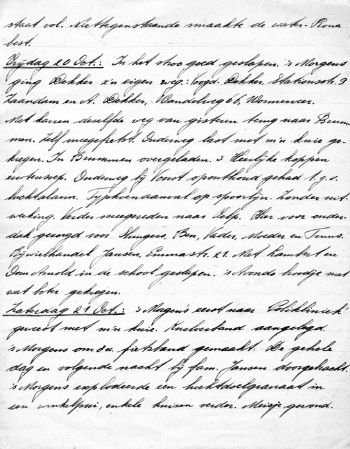 staat vol. Niettegenstaande smaakte de water. Prima
best.
Vrijdag 20 Oct.: In het stroo goed geslapen. 's Morgens
ging Dekker z'n eigen weg. Voogd. Dekker, Stationsstr. 9
Zaandam en A. Dekker, Wandelweg 66, Wormerveer.
Met karren denzelfde weg van gisteren terug naar Brum-
men. Zelf meegefietst. Onderweg last met m'n knie ge-
kregen. In Brummen overgeladen. 3 Heerlijke koppen
erwtensoep. Onderweg bij Voorst oponthoud gehad t.g.v.
luchtalarm. Typhoonaanval op spoorlijn. Zonder uit-
werking. Verder meegereden naar Velp. Hier voor onder-
dak gezorgd voor Vader, Moeder en
Rijwielhandel Jansen, Emmastr. 21. Met Lambert en
Oom Arnold in de school geslapen. 's Avonds broodje met
wat boter gekregen.
Zaterdag 21 Oct.: 's Morgens eerst naar Polikliniek
geweest met m'n knie. Knieverband aangelegd.
's Morgens om 8 u. fietsband gemaakt. De geheele
dag en volgende nacht bij fam. Jansen doorgebracht.
's Morgens explodeerde een luchtdoelgranaat in
een winkelpui, enkele huizen verder. Meisje gewond.